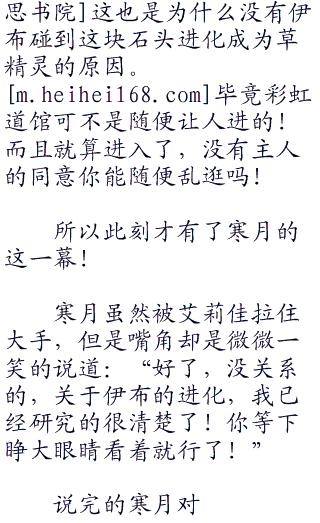 思书院]这也是为什么没有伊
布碰到这块石头进化成为草
精灵的原因。
[m.heihei168.com]毕竟彩虹
道馆可不是随便让人进的！
而且就算进入了，没有主人
的同意你能随便乱逛吗！
所以此刻才有了寒月的
这一幕！
寒月虽然被艾莉佳拉住
大手，但是嘴角却是微微一
笑的说道：“好了，没关系
的，关于伊布的进化，我已
经研究的很清楚了！你等下
睁大眼睛看着就行了！”
说完的寒月对